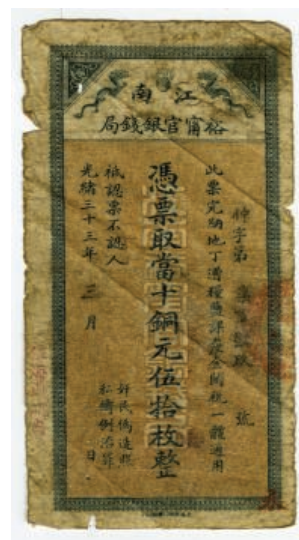 江南
裕甯官銀錢局
此票完納地丁漕糧鹽課釐金關稅一體通用
憑票取當十銅元伍拾枚整
祇認票不認人
光緒三十三年 三 月 日
奸民偽造照
私鑄例治罪
字第 號